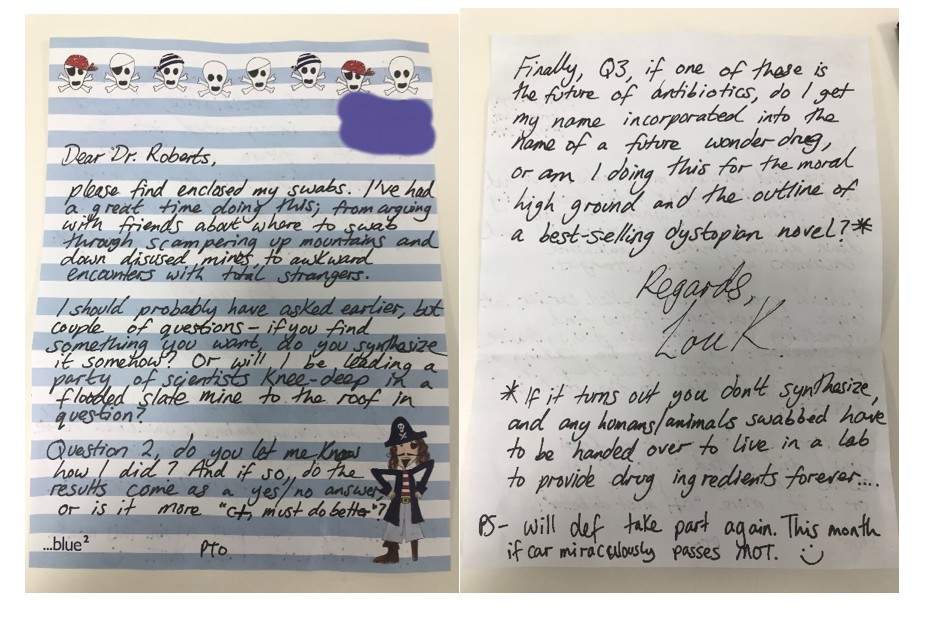 Dear Dr. Roberts,
please find enclosed my swabs. I've had
a great time doing this; from arguing
with friends about where to swab
through scampering up mountains and
down disused mines to awkward
encounters with total strangers.
I should probably have asked earlier, but
couple of questions - if you find
something you want, do you synthesize
it somehow? Or will I be leading a
party of scientists knee-deep in a
flooded slate mine to the roof in
question?
Question 2, do you let me know
how I did? And if so, do the
results come as a yes/no answer,
or is it more "C+, must do better"?
...blue²
PTO
Finally, Q3, if one of these is
the future of antibiotics, do I get
my name incorporated into the
name of a future wonder drug,
or am I doing this for the moral
high ground and the outline of
a best-selling dystopian novel?*
Regards,
Lou K.
* If it turns out you don't synthesize,
and any humans/animals swabbed have
to be handed over to live in a lab
to provide drug ingredients forever....
PS- will def take part again. This month
if car miraculously passes MOT. :)